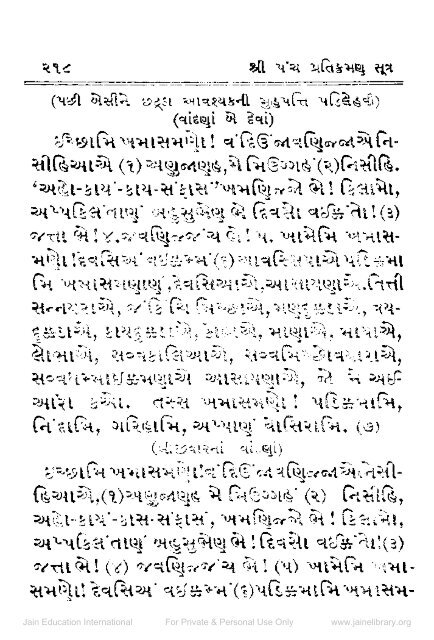 ૨૧૮ શ્રી પંચ પ્રતિક્રમણ સૂત્ર
(પછી બેસીને છઠ્ઠા આવશ્યકની મુહપત્તિ પડિલેહવી)
(વાંદણાં બે દેવાં)
ઈચ્છામિ ખમાસમણો! વંદિઉં જાવણિજ્જાએ નિ-
સીહિઆએ (૧) અણુજાણહ, મે મિઉગ્ગહં (૨) નિસીહિ.
અહો-કાયં-કાય-સંફાસં ખમણિજ્જો ભે! કિલામો,
અપ્પકિલંતાણં બહુસુભેણ ભે દિવસો વઈક્કંતો! (૩)
જત્તા ભે! ૪. જવણિજ્જં ચ ભે! ૫. ખામેમિ ખમાસ-
મણો! દેવસિઅં વઈક્કમ્મં (૬) આવસ્સિઆએ પડિક્કમા
મિ ખમાસમણાણં, દેવસિઆએ, આસાયણાએ, તિત્તી
સન્નયરાએ, જં કિંચિ મિચ્છાએ, મણદુક્કડાએ, વય-
દુક્કડાએ, કાયદુક્કડાએ, કોહાએ, માણાએ, માયાએ,
લોભાએ, સવ્વકાલિઆએ, સવ્વમિચ્છોવયારાએ,
સવ્વધમ્માઈક્કમણાએ આસાયણાએ, જો મે અઈ-
આરો કઓ. તસ્સ ખમાસમણો! પડિક્કમામિ,
નિંદામિ, ગરિહામિ, અપ્પાણં વોસિરામિ. (૭)
(બીજીવારનાં વાંદણાં)
ઇચ્છામિ ખમાસમણો! વંદિઉં જાવણિજ્જાએ નિસી-
હિઆએ, (૧) અણુજાણહ મે મિઉગ્ગહં (૨) નિસીહિ,
અહો-કાયં-કાય-સંફાસં, ખમણિજ્જો ભે! કિલામો,
અપ્પકિલંતાણં બહુસુભેણ ભે! દિવસો વઈક્કંતો! (૩)
જત્તા ભે! (૪) જવણિજ્જં ચ ભે! (૫) ખામેમિ ખમા-
સમણો! દેવસિઅં વઈક્કમ્મં (૬) પડિક્કમામિ ખમાસમ-
Jain Education International For Private & Personal Use Only www.jainelibrary.org